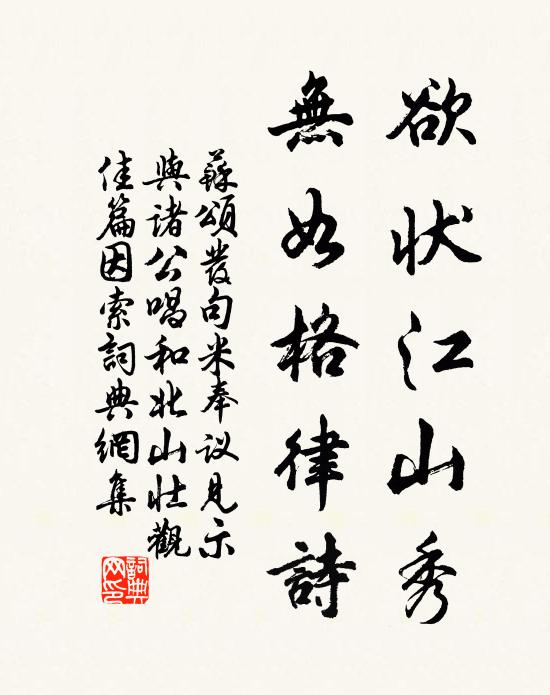 欲状江山秀
無如格律詩
蘇頌發句米奉议見示
與諸公唱和北山壮觀
佳篇因索詞典網集
詞典网印